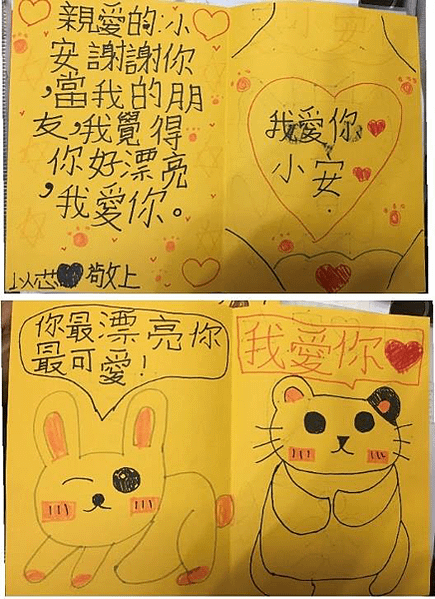 親愛的小
安謝謝你
,當我的朋
友,我覺得
你好漂亮
,我愛你。
以芯敬上
我愛你
小安.
你最漂亮你
最可愛!
我愛你